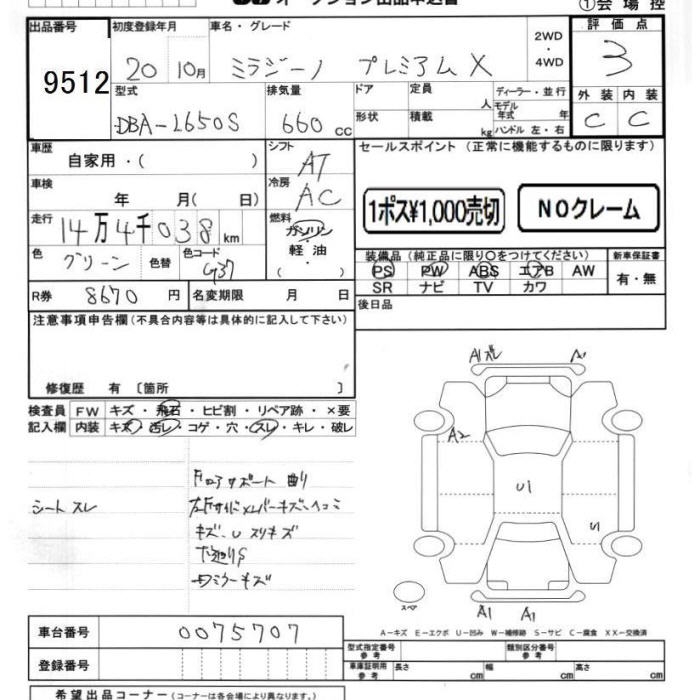 オークション出品申込書 ①会場控
出品番号 初度登録年月 車名・グレード 2WD・4WD 評価点
9512 20 10月 ミラジーノ プレミアムX 3
型式 排気量 ドア 定員 人 ディーラー・並行
DBA-L650S 660 cc 形状 積載 kg モデル年式 年 ハンドル 左・右
外装 内装
C C
車歴 自家用・( ) シフト AT
車検 年 月( 日) 冷房 AC
走行 14万4千038km 燃料 ガソリン 軽油 ( )
色 グリーン 色替 色コード G37
R券 8670円 名変期限 月 日
セールスポイント(正常に機能するものに限ります)
1ポス¥1,000売切 NOクレーム
装備品(純正品に限り○をつけてください) 新車保証書
PS PW ABS エアB AW 有・無
SR ナビ TV カワ
後日品
注意事項申告欄(不具合内容等は具体的に記入して下さい)
修復歴 有 〔箇所 〕
検査員記入欄 FW キズ・飛石・ヒビ割・リペア跡・×要
内装 キズ・汚レ・コゲ・穴・スレ・キレ・破レ
シート スレ
Fロアサポート 曲り
左Fサイドメンバーキズ・ヘコミ
キズ・U スリキズ
下廻りS
ミラーキズ
A1スレ A1
A2
U1
S1
スペア
A1 A1
A-キズ E-エクボ U-凹み W-補修跡 S-サビ C-腐食 XX-交換済
車台番号 0075707
登録番号
型式指定番号 参考 類別区分番号 参考
車庫証明用 参考 長さ cm 幅 cm 高さ cm
希望出品コーナー(コーナーは各会場により異なります。)